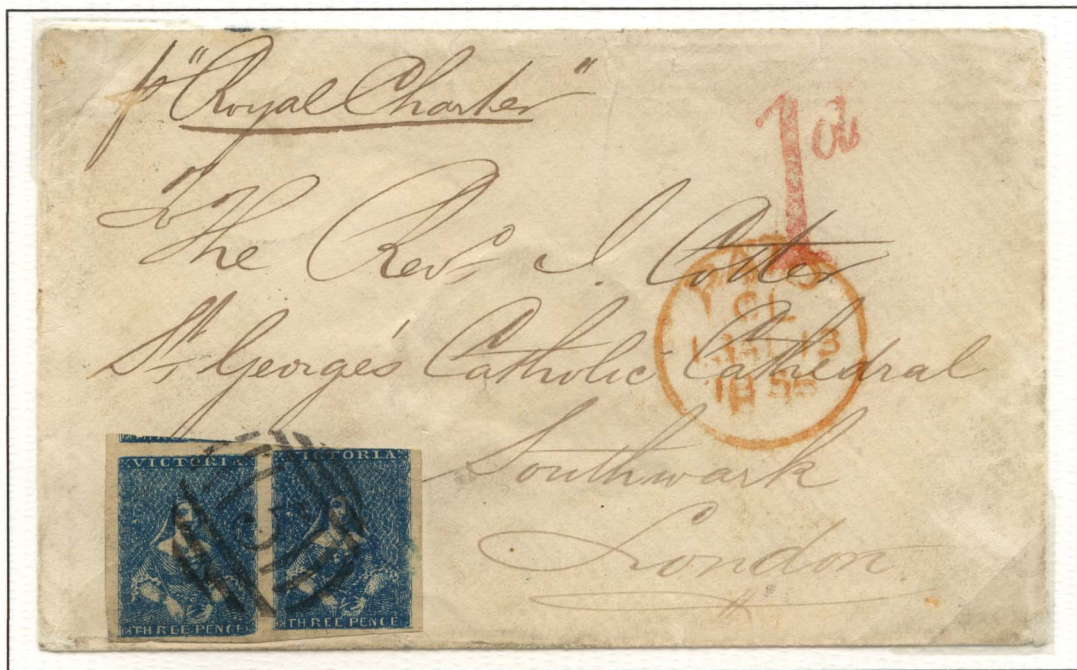 p "Royal Charter"
1d
To
The Revd. J. Cotter
St. George's Catholic Cathedral
Southwark
London
PAID
CL
1855
VICTORIA VICTORIA
THREE PENCE THREE PENCE